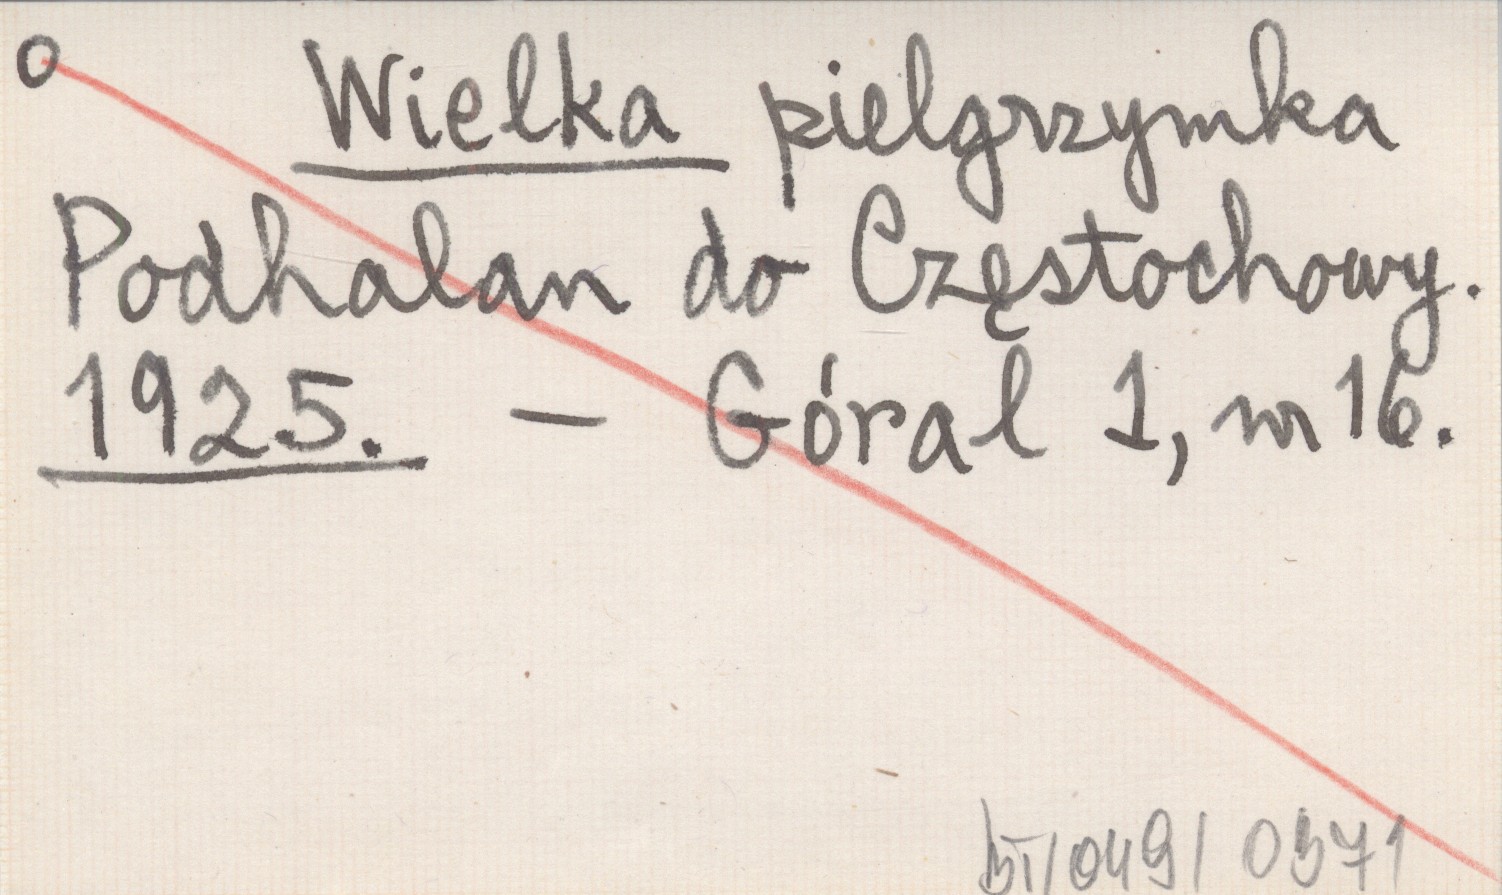 O Wielka pielgrzymka
Podhalan do Częstochowy.
1925. — Góral 1, nr 16.
BI/049/0571